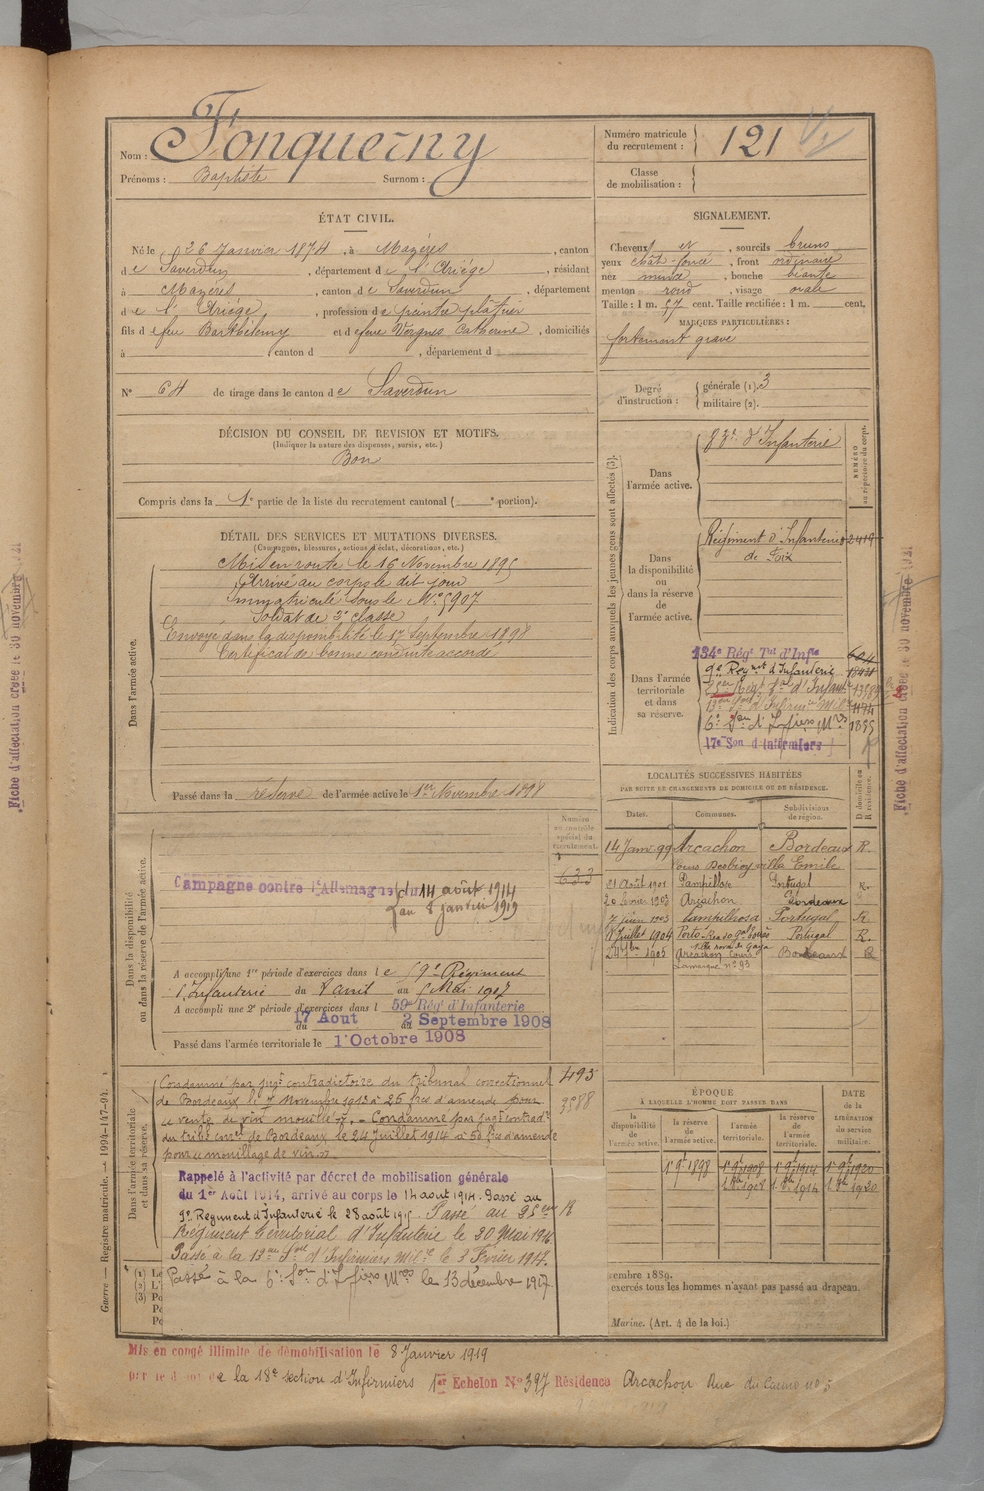 Nom : Fonquerny
Prénoms : Baptiste Surnom :
Numéro matricule du recrutement : 121
Classe de mobilisation :
ÉTAT CIVIL.
Né le 26 Janvier 1874, à Mazères, canton
de Saverdun, département de l'Ariège, résidant
à Mazères, canton de Saverdun, département
de l'Ariège, profession de peintre plâtrier
fils de feu Barthélemy et de feue Vergnes Catherine, domiciliés
à , canton d , département d
N° 64 de tirage dans le canton de Saverdun
DÉCISION DU CONSEIL DE REVISION ET MOTIFS.
(Indiquer la nature des dispenses, sursis, etc.)
Bon
Compris dans la 1e partie de la liste du recrutement cantonal ( e portion).
SIGNALEMENT.
Cheveux et , sourcils bruns
yeux chât-foncé , front ordinaire
nez , bouche
menton rond , visage ovale
Taille : 1 m. 57 cent. Taille rectifiée : 1 m. cent.
MARQUES PARTICULIÈRES :
fortement gravé
Degré d'instruction : générale (1). 3
militaire (2).
DÉTAIL DES SERVICES ET MUTATIONS DIVERSES.
(Campagnes, blessures, actions d'éclat, décorations, etc.)
Dans l'armée active.
Mis en route le 16 Novembre 1895
Arrivé au corps le dit jour
immatriculé sous le N° 5907
Soldat de 2e classe
Envoyé dans la disponibilité le 17 Septembre 1898
Certificat de bonne conduite accordé
Passé dans la réserve de l'armée active le 1er Novembre 1898
Indication des corps auxquels les jeunes gens sont affectés (3).
NUMÉRO au répertoire du corps.
Dans l'armée active.
d'Infanterie
Dans la disponibilité ou dans la réserve de l'armée active.
Régiment d'Infanterie 2419
de Foix
Dans l'armée territoriale et dans sa réserve.
134e Régt Tal d'Infie
9e Regnt d'Infanterie
6e Son d'Infirs Mres 1895
17e Son d'Infirmiers
LOCALITÉS SUCCESSIVES HABITÉES
PAR SUITE DE CHANGEMENTS DE DOMICILE OU DE RÉSIDENCE.
Dates. Communes. Subdivisions de région. D domicile ou R résidence.
14 Janv 99 Arcachon Bordeaux R.
villa Emile
21 Août 1901 Pampilhosa Portugal R.
20 1903 Arcachon Bordeaux
7 juin 1903 Pampilhosa Portugal R
Juillet 1904 Porto Portugal R.
24 7bre 1905 Arcachon Cours Bordeaux R
Lamarque n° 93
Dans la disponibilité ou dans la réserve de l'armée active.
Numéro au contrôle spécial du recrutement.
633
Campagne contre l'Allemagne du 14 août 1914
au 8 janvier 1919
A accompli une 1re période d'exercices dans le 59e Régiment
d'Infanterie du 8 avril au 5 Mai 1907
A accompli une 2e période d'exercices dans l 59e Régt d'Infanterie
du 17 Aout au 2 Septembre 1908
Passé dans l'armée territoriale le 1er Octobre 1908
Dans l'armée territoriale et dans sa réserve.
Condamné par jugt contradictoire du tribunal correctionnel 493
de Bordeaux le 7 novembre 1913 à 25 frcs d'amende pour
vente de vin mouillé. Condamné par jugt contradre
du tribl corel de Bordeaux le 24 Juillet 1914 à 50 frcs d'amende
pour mouillage de vin.
Rappelé à l'activité par décret de mobilisation générale
du 1er Août 1914, arrivé au corps le 14 août 1914. Passé au
9e Regiment d'Infanterie le 28 août 1915. Passé au
Régiment Territorial d'Infanterie le 20 Mai 1916.
Passé à la d'Infirmiers Mre le 3 Février 1917.
Passé à la 6e Son d'Infirs Mres le 13 décembre 1917
ÉPOQUE
À LAQUELLE L'HOMME DOIT PASSER DANS
la disponibilité de l'armée active. la réserve de l'armée active. l'armée territoriale. la réserve de l'armée territoriale.
DATE de la LIBÉRATION du service militaire.
1er 9bre 1898 1er 9bre 1908 1er 9bre 1914 1er 9bre 1920
1 8bre 1908 1 8bre 1914 1 8bre 1920
(1) Le
(2) L'i
(3) Po
Po
Po
embre 1889.
exercés tous les hommes n'ayant pas passé au drapeau.
Marine. (Art. 4 de la loi.)
Mis en congé illimité de démobilisation le 8 Janvier 1919
par le dépôt de la 18e section d'Infirmiers 1er Echelon N° 397 Résidence Arcachon Rue du Casino n° 5
Guerre — Registre matricule. — 1994-147-04.
Fiche d'affectation créée le 30 novembre 1921
Fiche d'affectation créée le 30 novembre 1921